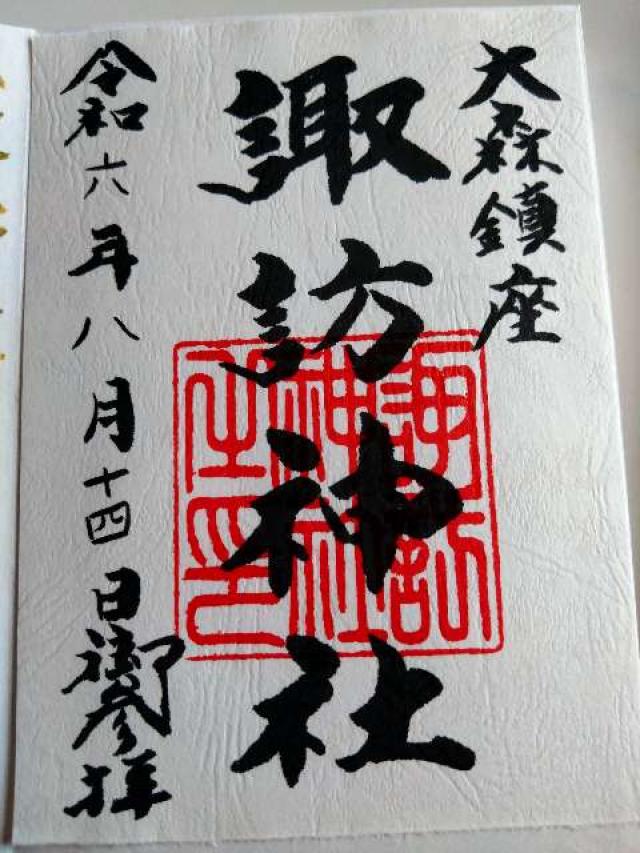 大森鎮座
諏訪神社
令和六年八月十四日御参拝
諏訪
神社
之印